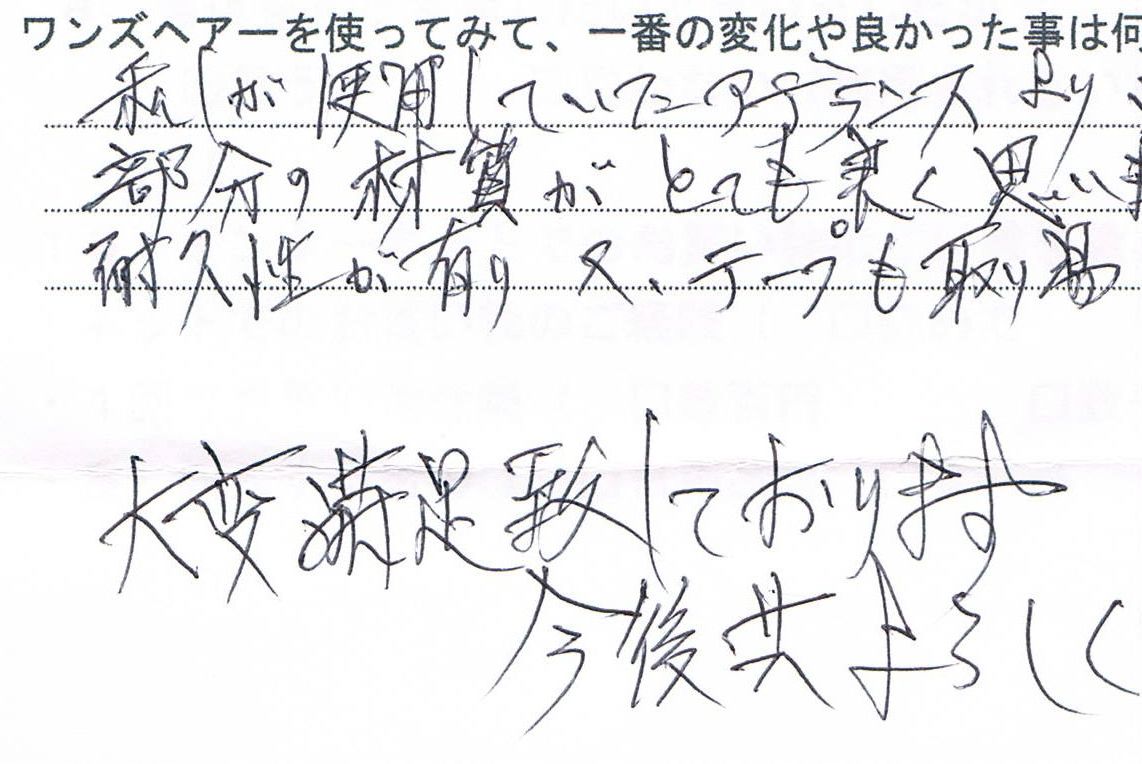 ワンズヘアーを使ってみて、一番の変化や良かった事は何
私しが使用していたアデランスより、
部分の材質がとても良く思いま
耐久性が有り 又、テープも取り易
大変満足致しております
今後共よろしく